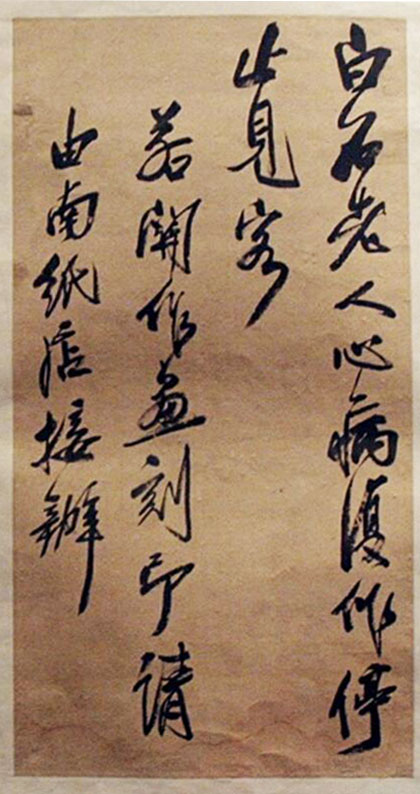 白石老人心病復作停
止見客
若關作畫刻印請
由南紙店接辦